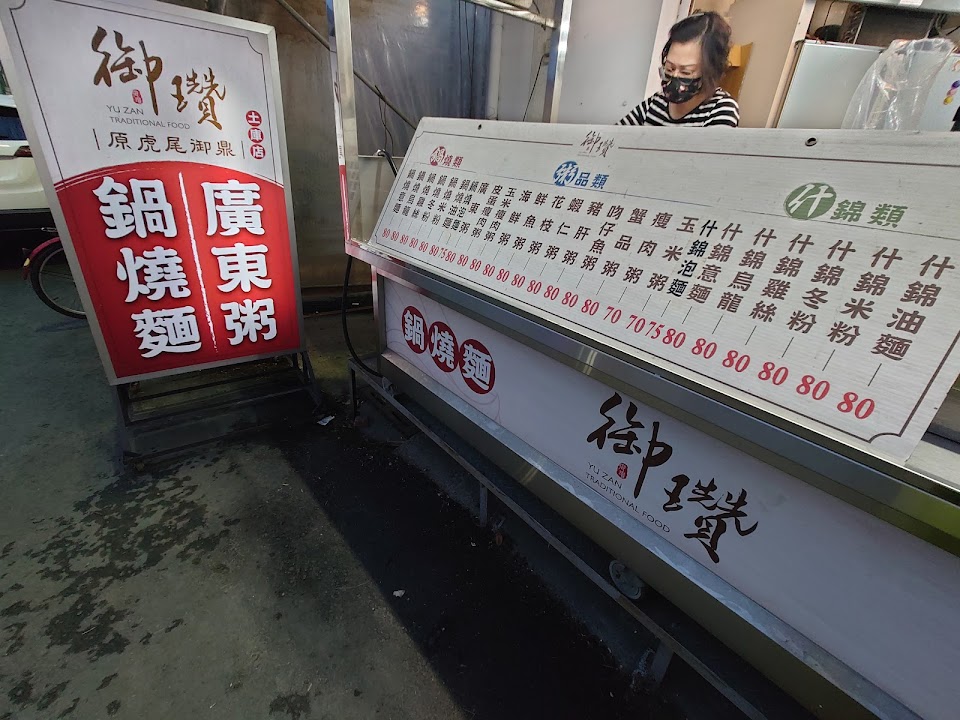 御瓚
YU ZAN
TRADITIONAL FOOD
原虎尾御鼎
土庫店
廣東粥
鍋燒麵
御瓚
鍋燒類
粥品類
什錦類
海鮮粥
鮮魚粥
花枝粥
蝦仁粥
豬肝粥
吻仔魚粥
蟹肉粥
瘦肉粥
玉米粥
什錦泡麵
什錦意麵
什錦烏龍
什錦雞絲
什錦冬粉
什錦米粉
什錦油麵
80 80 80 80 75 80 80 80 80 80 80 80 80 80 80 70 70 75 80 80 80 80 80 80 80
鍋燒麵
御瓚
YU ZAN
TRADITIONAL FOOD